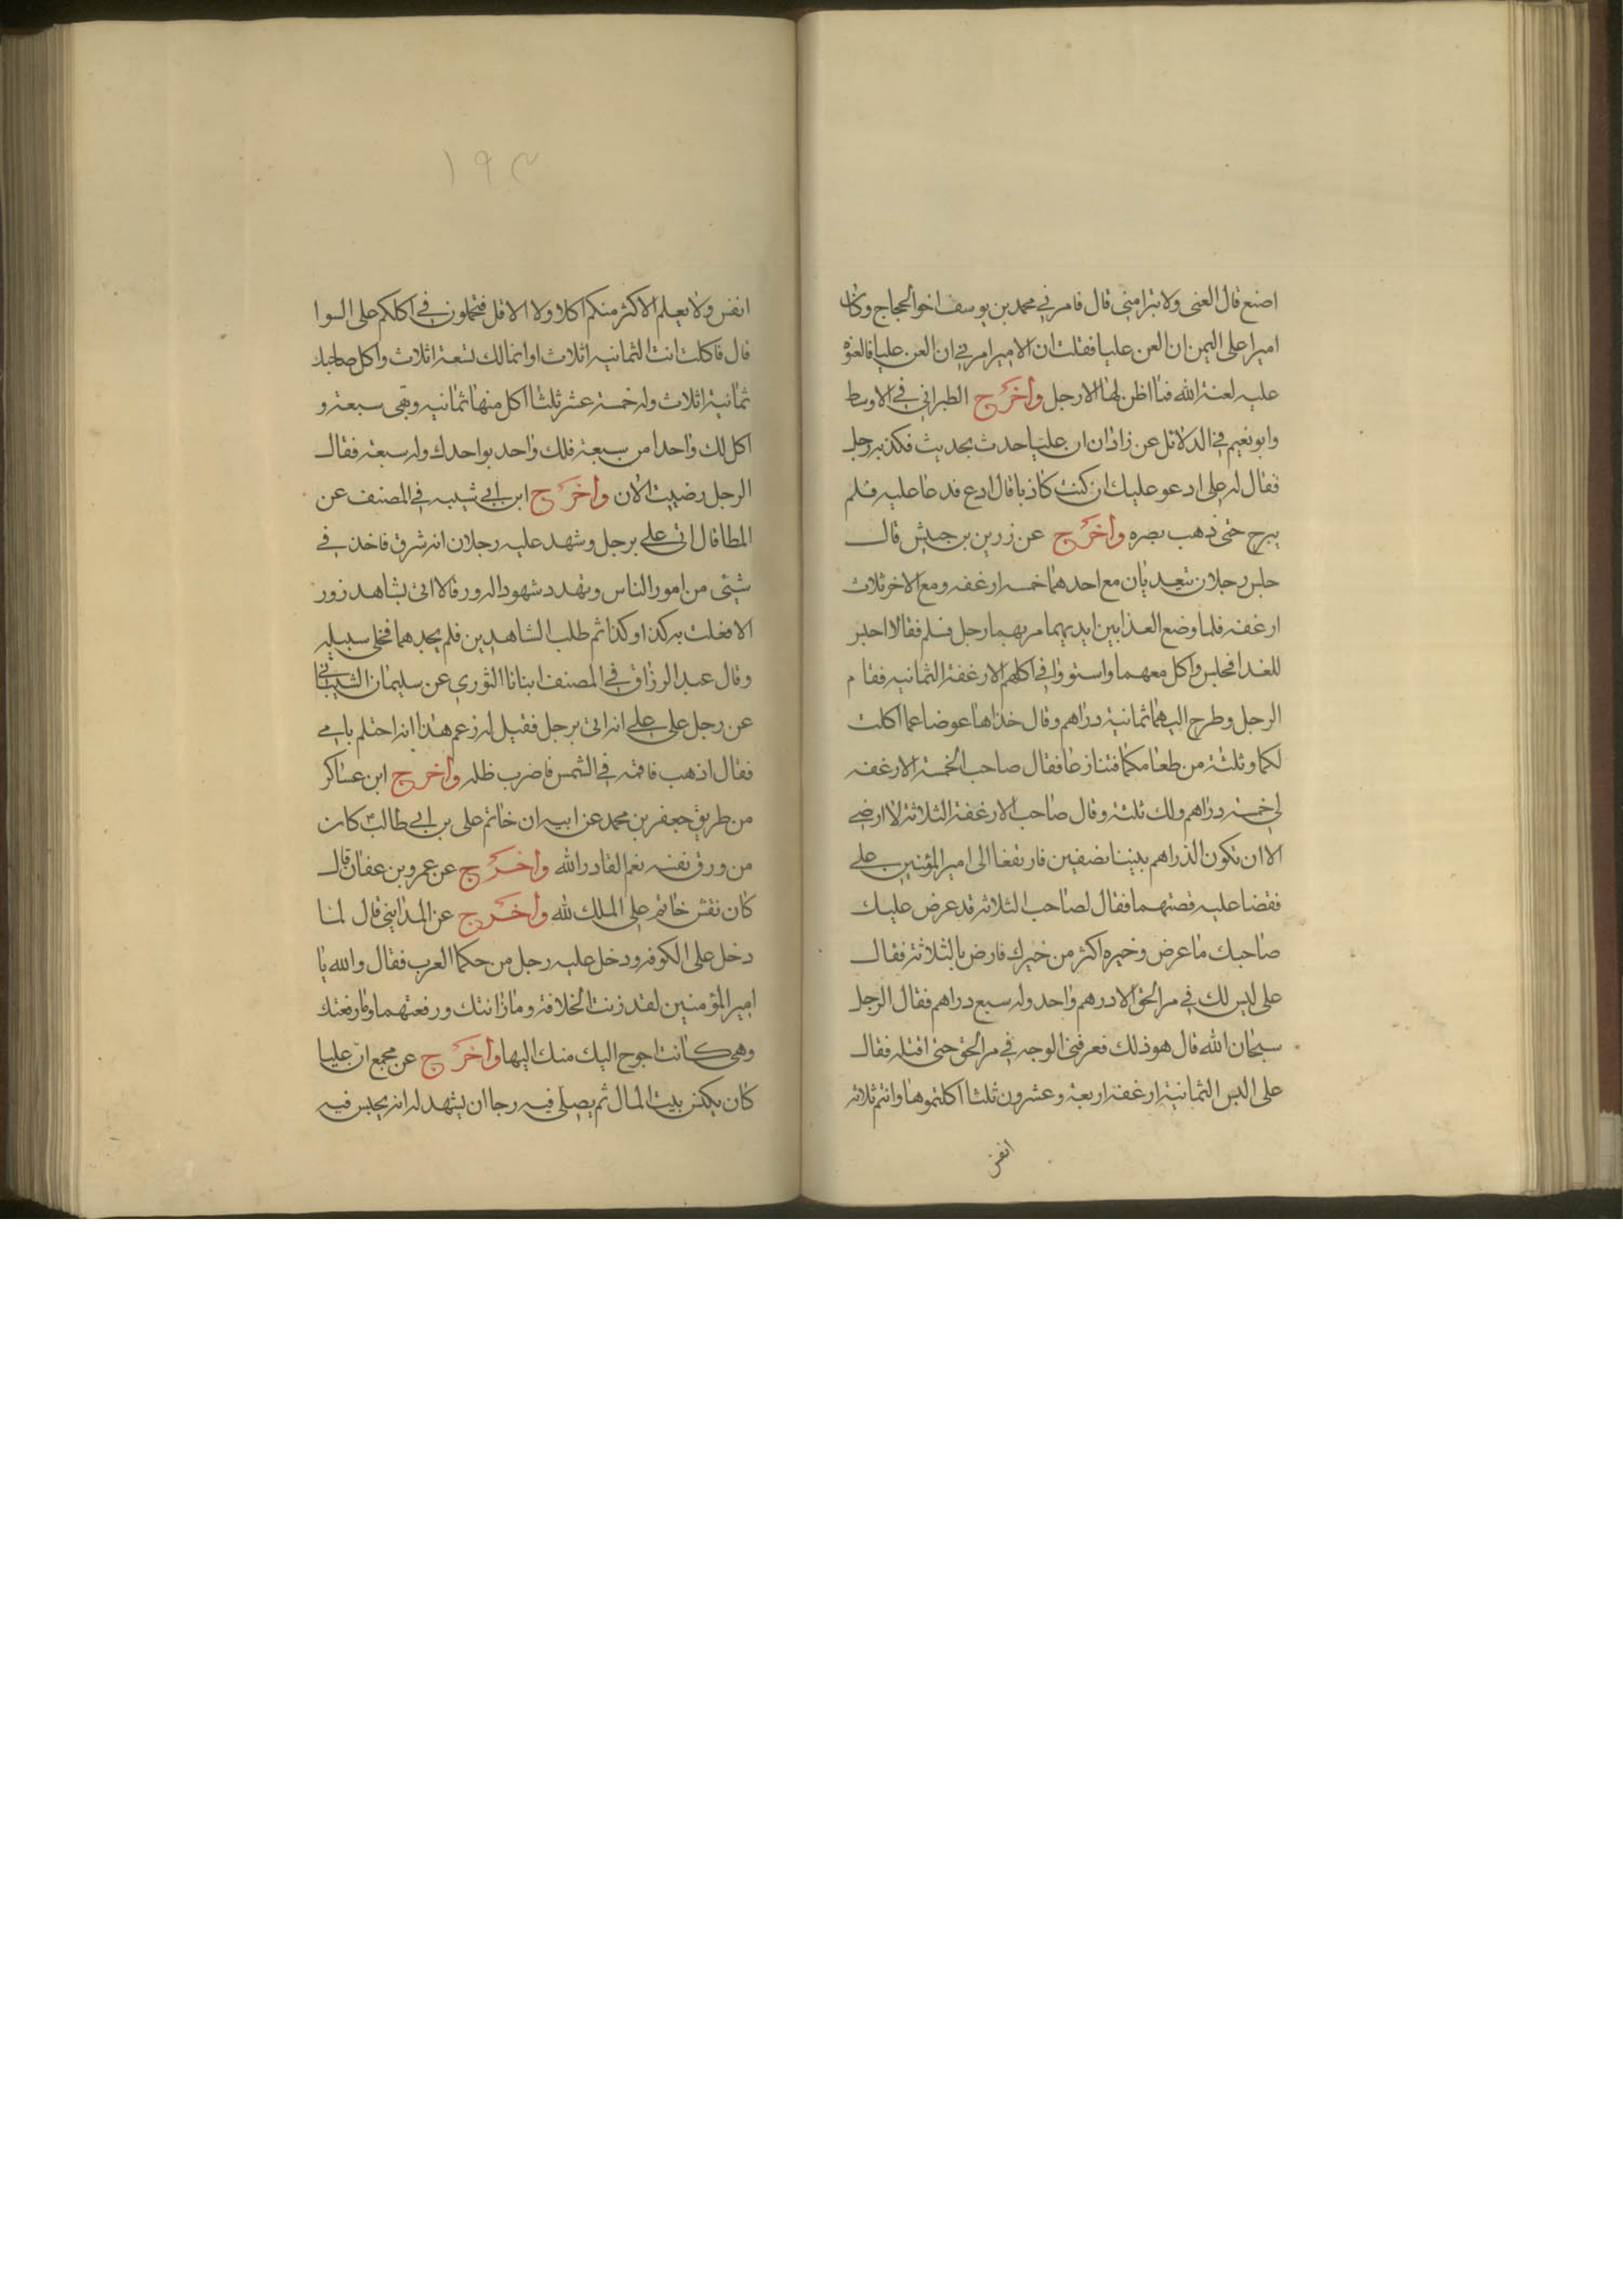 اصنع قال العنى ولا تبرا منى قال فامرنى محمد بن يوسف اخو الحجاج وكان
اميرا على اليمن ان العن عليا فقلت ان الامير امرنى ان العن عليا فالعنوه
عليه لعنة الله فما فطن لها الا رجل وأخرج الطبرانى فى الاوسط
وابو نعيم فى الدلائل عن زاذان ان عليا حدث بحديث فكذبه رجل
فقال له على ادعو عليك ان كنت كاذبا قال ادع فدعا عليه فلم
يبرح حتى ذهب بصره وأخرج عن زر بن حبيش قال
جلس رجلان يتغديان مع احدهما خمسه ارغفه ومع الاخر ثلاث
ارغفه فلما وضع الغدا بين ايديهما مر بهما رجل فسلم فقالا اجلس
للغدا فجلس واكل معهما واستووا فى اكلهم الارغفة الثمانيه فقام
الرجل وطرح اليهما ثمانية دراهم وقال خذاها عوضا عما اكلت
لكما ونلته من طعامكما فتنازعا فقال صاحب الخمسة الارغفه
لى خمسة دراهم ولك ثلثة وقال صاحب الارغفة الثلاثة لا ارضى
الا ان تكون الدراهم بيننا نصفين فارتفعا الى امير المؤنين على
فقصا عليه قصتهما فقال لصاحب الثلاثه قد عرض عليك
صاحبك ما عرض وخبزه اكثر من خبزك فارض بالثلاثة فقال
على ليس لك فى مر الحق الا درهم واحد وله سبع دراهم فقال الرجل
سبحان الله قال هو ذلك فعرفنى الوجه فى مر الحق حتى اقبله فقال
على اليس الثمانية ارغفه اربعة وعشرون ثلثا اكلتموها وانتم ثلاثه
انفس
١٩٣
انفس ولا يعلم الاكثر منكم اكلا ولا الاقل فتحملون فى اكلكم على السوا
قال فاكلت انت الثمانيه اثلاث اوانما لك تسعة اثلاث واكل صاحبك
ثمانية اثلاث وله خمسة عشر ثلثا اكل منها ثمانيه وبقى سبعة و
اكل لك واحدا من سبعة فلك واحد بواحدك وله سبعة فقال
الرجل رضيت الان وأخرج ابن ابى شيبه فى المصنف عن
المطا قال اتى على برجل وشهد عليه رجلان انه سرق فاخذ فى
شيئى من امور الناس وتهدد شهود الزور وقال لا اتى بشاهد زور
الا فعلت به كذا وكذا ثم طلب الشاهدين فلم يجدهما فخلى سبيله
وقال عبد الرزاق فى المصنف ابنانا الثورى عن سليمان الشيبانى
عن رجل على على انه اتى برجل فقيل له زعم هذا انه احتلم بامى
فقال اذهب فاقمه فى الشمس فاضرب ظله وأخرج ابن عساكر
من طريق جعفر بن محمد عن ابيه ان خاتم على بن ابى طالب كان
من ورق نقشه نعم القادر الله وأخرج عن عمرو بن عفان قال
كان نقش خاتم على الملك لله وأخرج عن المداينى قال لما
دخل على الكوفه ودخل عليه رجل من حكما العرب فقال والله يا
امير المؤمنين لقد زنت الخلافة وما زانتك ورفعتهما وما رفعتك
وهى كانت احوج اليك منك اليها وأخرج عن مجمع ان عليا
كان يكنس بيت المال ثم يصلى فيه رجا ان يشهد له انه يحبس فيه